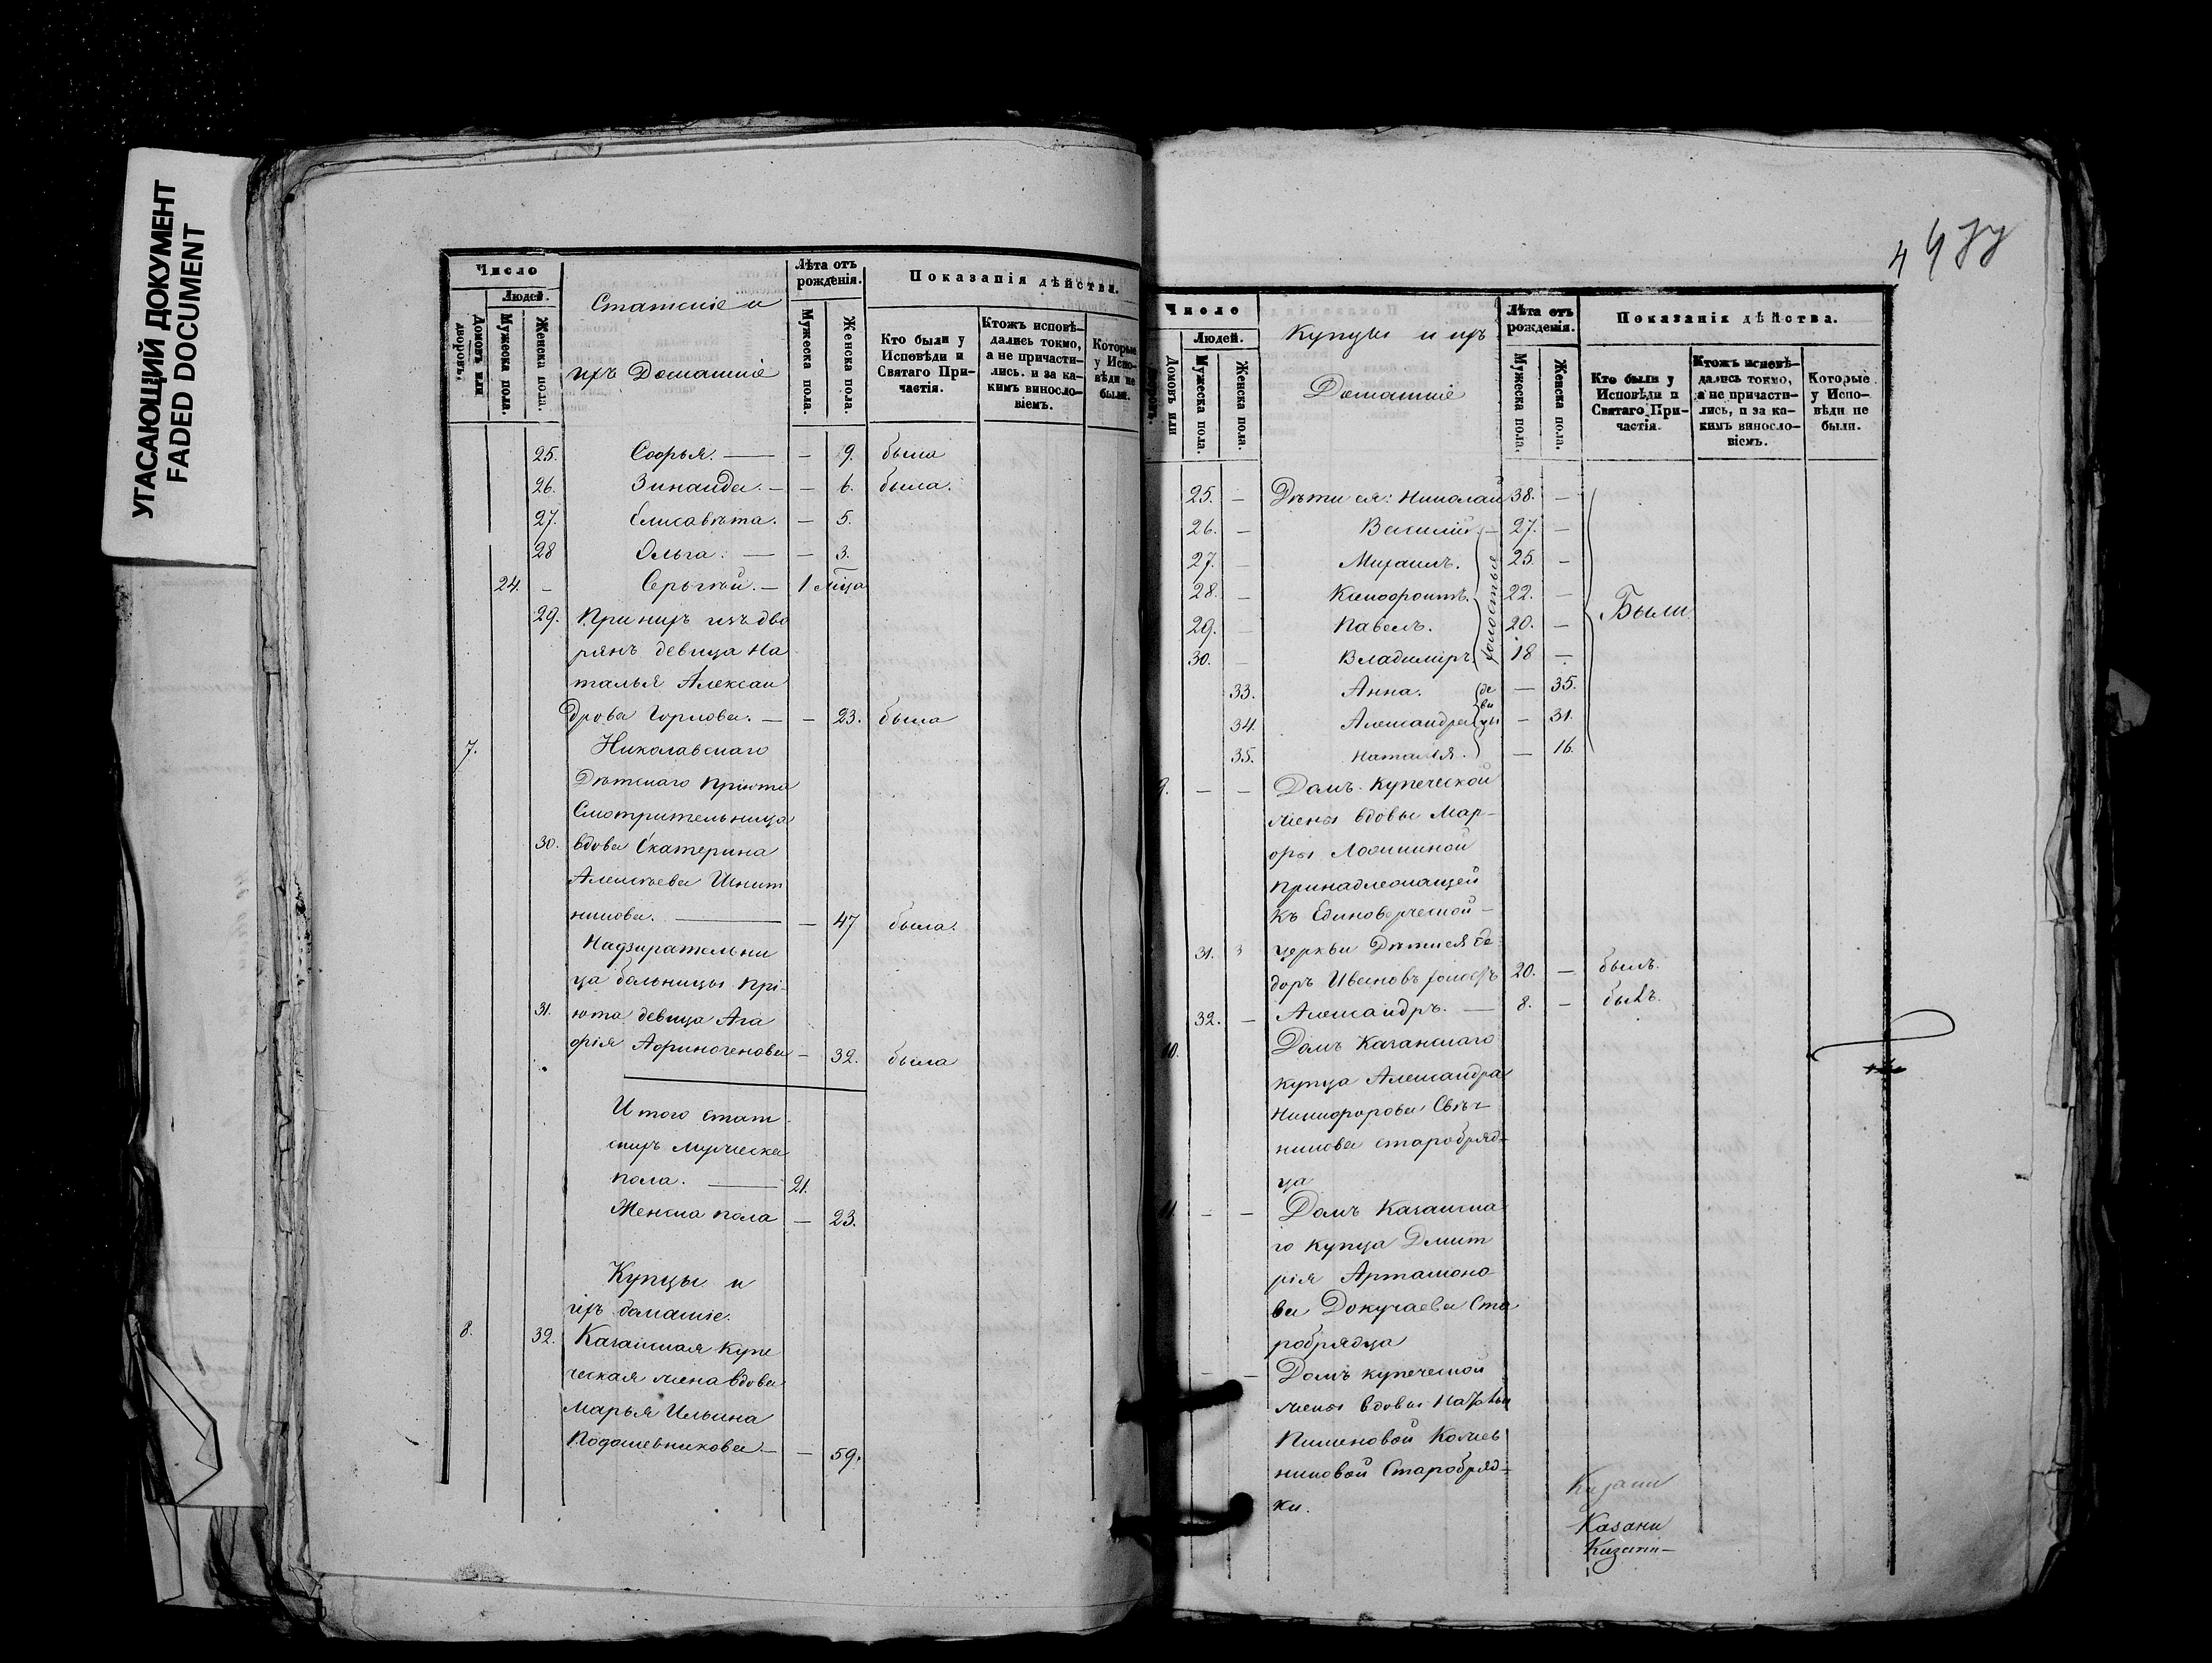 УГАСАЮЩИЙ ДОКУМЕНТ
FADED DOCUMENT
Число
Людей.
Домовъ или дворовъ.
Мужеска пола.
Женска пола.
Статскіе и
ихъ Домашніе
Лѣта отъ рожденія.
Мужеска пола.
Женска пола.
Показанія дѣйства.
Кто были у Исповѣди и Святаго Причастія.
Ктожъ исповѣдались токмо, а не причастились. и за какимъ винословіемъ.
Которые у Исповѣди не были.
25. Софья. — — 9. была
26. Зинаида. — — 6. была.
27. Елисавѣта. — 5.
28 Ольга. — — 3.
24. — Сергѣй. — 1 м̃ца
29. При нихъ изъ дво
рянъ девица На
талья Алексан
дрова Горлова. — — 23. была
7. Николавскаго
Дѣтскаго Пріюта
Смотрительница
30. вдова Екатерина
Алексѣева
никова. — — 47 была.
Надзирательни
ца больницы Прі-
31. юта девица Ага
фія Афиногенова — 32. была
Итого стат
скихъ Мужеска
пола. — 21.
Женска пола — 23.
Купцы и
ихъ домашніе.
8. 32. Казанская Купе
ческая жена вдова
Марья Ильина
Подошевникова — — 59.
4 477
Число
Людей.
Домовъ или
Мужеска пола.
Женска пола.
Купцы и ихъ
Домашніе
Лѣта отъ рожденія.
Мужеска пола.
Женска пола.
Показанія дѣйства.
Кто были у Исповѣди и Святаго Причастія.
Ктожъ исповѣдались токмо, а не причастились, и за какимъ винословіемъ.
Которые у Исповѣди не были.
25. — Дѣти ея: Николай 38. —
26. — Василій. — 27. —
27. — Михаилъ. 25. —
28. — Ксенофонтъ. 22. —
29. — Павелъ. 20. —
30. — Владиміръ. 18 —
холостые
Были
33. Анна. — 35.
34. Александра — 31.
35. Наталья. — 16.
девицы
9. — — Домъ Купеческой
жены вдовы Мар-
фы
принадлежащей
къ Единоверческой —
31. церкви Дѣти ея Ѳе
доръ Ивановъ холостъ 20. — былъ.
32. — Александръ. — 8. — былъ.
10. Домъ Казанскаго
купца Александра
Никифорова Свѣч-
никова старобряд-
ца
11. — — Домъ Казанска
го купца Дмит
рія Артамоно
ва Докучаева Ста
робрядца
— — Домъ купеческой
жены вдовы Натальи
Пименовой Кожев
никовой Старобряд-
ки.
Казани
Казани
Казани —